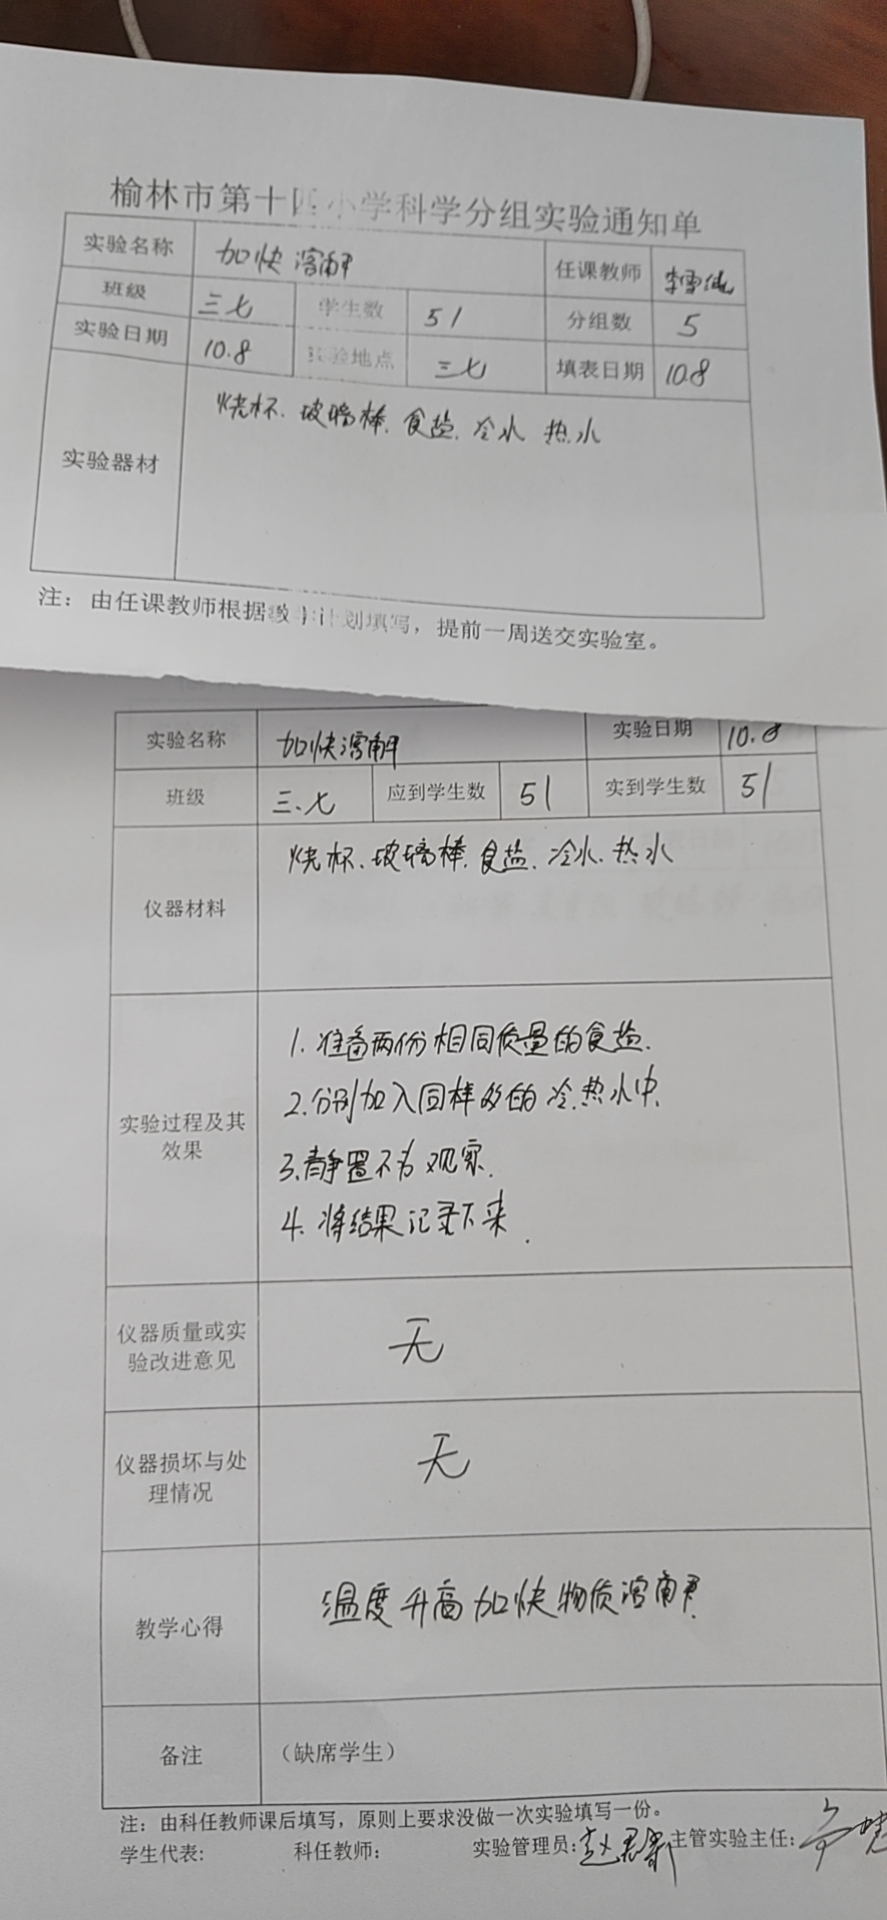 榆林市第十四小学科学分组实验通知单
实验名称 加快溶解 任课教师 李雪
班级 三七 学生数 51 分组数 5
实验日期 10.8 实验地点 三七 填表日期 10.8
实验器材 烧杯、玻璃棒、食盐、冷水 热水
注：由任课教师根据教学计划填写，提前一周送交实验室。
实验名称 加快溶解 实验日期 10.8
班级 三.七 应到学生数 51 实到学生数 51
仪器材料 烧杯、玻璃棒、食盐、冷水、热水
实验过程及其
效果
1. 准备两份相同质量的食盐.
2. 分别加入同样多的冷.热水中.
3. 静置不动 观察.
4. 将结果记录下来.
仪器质量或实
验改进意见
无
仪器损坏与处
理情况
无
教学心得 温度升高加快物质溶解.
备注 （缺席学生）
注：由科任教师课后填写，原则上要求没做一次实验填写一份。
学生代表: 科任教师: 实验管理员: 赵 主管实验主任: